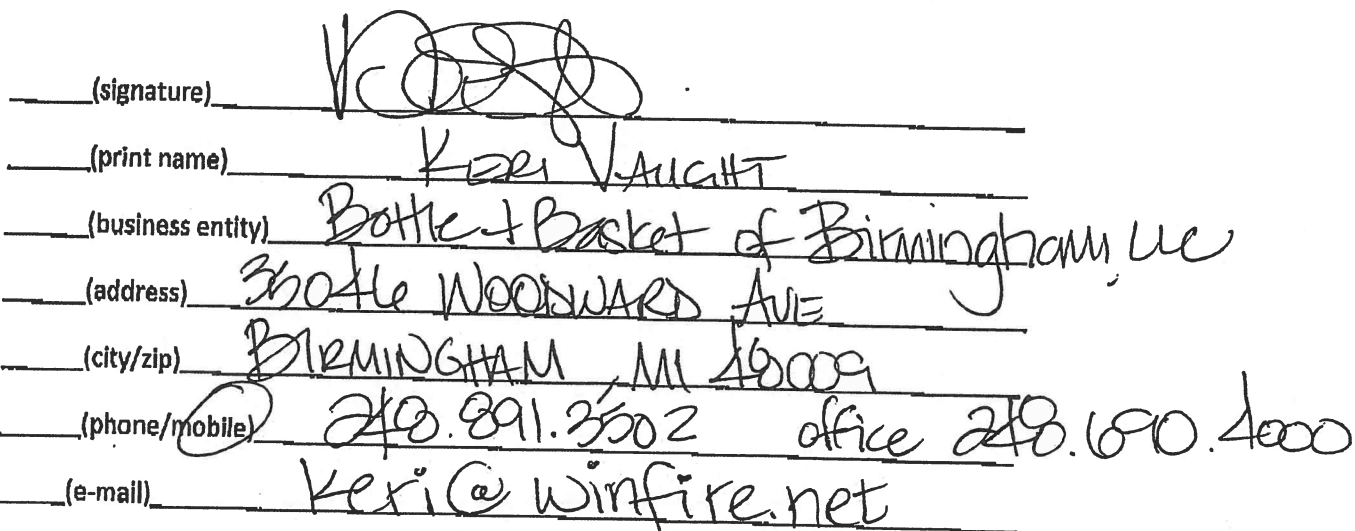 (signature)
(print name) KERI VAUGHT
(business entity) Bottle + Basket of Birmingham, LLC
(address) 35046 WOODWARD AVE
(city/zip) BIRMINGHAM, MI 48009
(phone/mobile) 248.891.3502 office 248.690.4000
(e-mail) keri@winfire.net